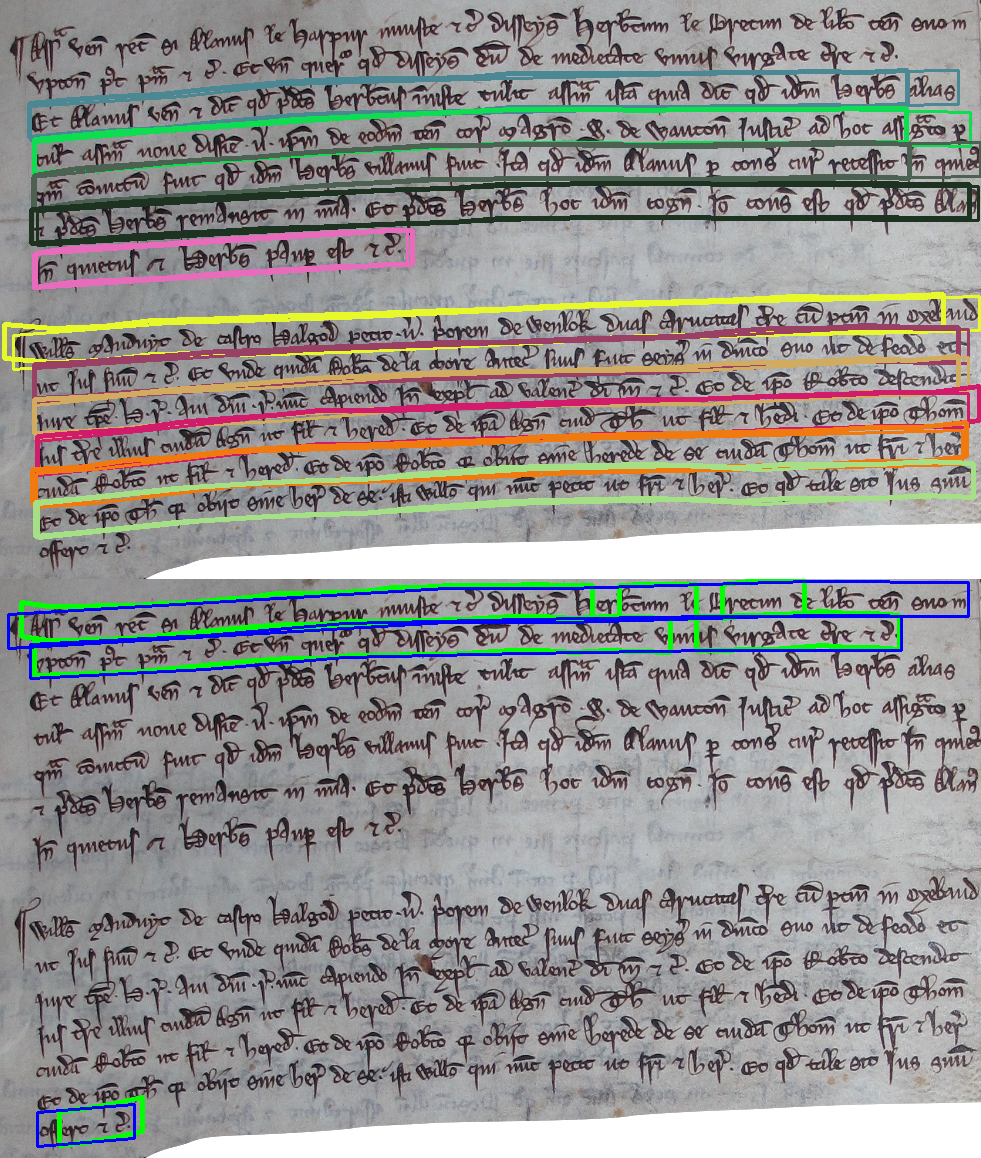 ¶ Ass̃a ven̄ rec̄ si Alanus le Harpur iniuste ⁊ c̃ disseyš Herb̄tum le Bretun de lib̄o ten̄ suo in
Upton̄ p̊t p̊m̄ ⁊ c̃. Et un̄ quer̃ qd̄ disseyš eū de medietate unius virgate t̃re ⁊ c̃.
Et Alanus ven̄ ⁊ dic̄ qd̄ p̃dc̄s Herb̄tus iniuste tulit assam̃ istā quia dic̄ qd̄ idm̄ Herb̄s alias
tul̄ assam̃ noue dissiē. v̄. ip̄m de eodm̄ ten̄ cor̃ Mag̃ro S. de Wauton̄ Justic̃ ad hoc assig̃to p
qm̃ cōuictū fuit qd̄ idm̄ Herb̄s villanus fuit Ita qd̄ idm̄ Alanus p cons̃ cur̃ recessit In̄ quiet̃
⁊ p̃dc̄s Herb̄s remansit in mīa. Et p̃dc̄s Herb̄s hoc idm̄ cogn̄. Iō cons̄ est qd̄ p̃dc̄s Alan̄
In̄ quietus ⁊ Herb̄s paup est ⁊ c̃.
¶ Will̄s Mauduyt de castro Halgod̄ petit. v̄. Priorem de Wenlok duas carucatas t̃re cū ptin̄ in Oxebaud
ut Jus suū ⁊ c̃. Et unde quidā Rob̄s de la More antec̃ suus fuit seyš in dn̄ico suo ut de feodo et
iure tp̄e. H. r̃. Aui dn̄i. r̃. nūc capiendo In̄ expl̄ ad valenc̃ di m̄ ⁊ c̃. Et de ip̄o Rob̄to descendit
Jus t̃re illius cuidā Agn̄ ut fil̄ ⁊ hered̃. Et de ip̄a Agn̄ cuid̄ Th̄ ut fil̄ ⁊ h̄edi. Et de ip̄o Thom̄
cuidā Rob̄to ut fil̄ ⁊ hered̃. Et de ip̄o Rob̄to q̃ obijt sine herede de se cuidā Thom̄ ut fr̄i ⁊ her̃
Et de ip̄o Th̄ q̃ obijt sine her̃ de se. isti Will̄o qui nūc petit ut fr̄i ⁊ her̃. Et qd̄ tale sit Jus suū
offert ⁊ c̃.
¶ Ass̃a ven̄ rec̄ si Alanus le Harpur iniuste ⁊ c̃ disseyš Herb̄tum le Bretun de lib̄o ten̄ suo in
Upton̄ p̊t p̊m̄ ⁊ c̃. Et un̄ quer̃ qd̄ disseyš eū de medietate unius virgate t̃re ⁊ c̃.
Et Alanus ven̄ ⁊ dic̄ qd̄ p̃dc̄s Herb̄tus iniuste tulit assam̃ istā quia dic̄ qd̄ idm̄ Herb̄s alias
tul̄ assam̃ noue dissiē. v̄. ip̄m de eodm̄ ten̄ cor̃ Mag̃ro S. de Wauton̄ Justic̃ ad hoc assig̃to p
qm̃ cōuictū fuit qd̄ idm̄ Herb̄s villanus fuit Ita qd̄ idm̄ Alanus p cons̃ cur̃ recessit In̄ quiet̃
⁊ p̃dc̄s Herb̄s remansit in mīa. Et p̃dc̄s Herb̄s hoc idm̄ cogn̄. Iō cons̄ est qd̄ p̃dc̄s Alan̄
In̄ quietus ⁊ Herb̄s paup est ⁊ c̃.
¶ Will̄s Mauduyt de castro Halgod̄ petit. v̄. Priorem de Wenlok duas carucatas t̃re cū ptin̄ in Oxebaud
ut Jus suū ⁊ c̃. Et unde quidā Rob̄s de la More antec̃ suus fuit seyš in dn̄ico suo ut de feodo et
iure tp̄e. H. r̃. Aui dn̄i. r̃. nūc capiendo In̄ expl̄ ad valenc̃ di m̄ ⁊ c̃. Et de ip̄o Rob̄to descendit
Jus t̃re illius cuidā Agn̄ ut fil̄ ⁊ hered̃. Et de ip̄a Agn̄ cuid̄ Th̄ ut fil̄ ⁊ h̄edi. Et de ip̄o Thom̄
cuidā Rob̄to ut fil̄ ⁊ hered̃. Et de ip̄o Rob̄to q̃ obijt sine herede de se cuidā Thom̄ ut fr̄i ⁊ her̃
Et de ip̄o Th̄ q̃ obijt sine her̃ de se. isti Will̄o qui nūc petit ut fr̄i ⁊ her̃. Et qd̄ tale sit Jus suū
offert ⁊ c̃.